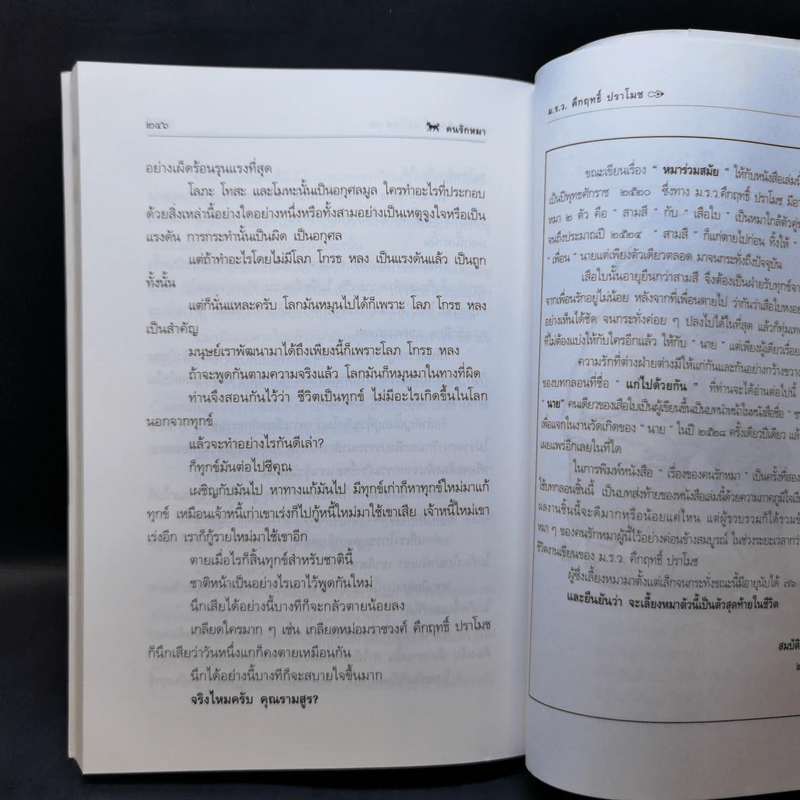 ๒๔๖
คนรักหมา
อย่างเผ็ดร้อนรุนแรงที่สุด
โลภะ โทสะ และโมหะนั้นเป็นอกุศลมูล ใครทำอะไรที่ประกอบ
ด้วยสิ่งเหล่านี้อย่างใดอย่างหนึ่งหรือทั้งสามอย่างเป็นเหตุจูงใจหรือเป็น
แรงดัน การกระทำนั้นเป็นผิด เป็นอกุศล
แต่ถ้าทำอะไรโดยไม่มีโลภ โกรธ หลง เป็นแรงดันแล้ว เป็นถูก
ทั้งนั้น
แต่ก็นั่นแหละครับ โลกมันหมุนไปได้ก็เพราะ โลภ โกรธ หลง
เป็นสำคัญ
มนุษย์เราพัฒนามาได้ถึงเพียงนี้ก็เพราะโลภ โกรธ หลง
ถ้าจะพูดกันตามความจริงแล้ว โลกมันก็หมุนมาในทางที่ผิด
ท่านจึงสอนกันไว้ว่า ชีวิตเป็นทุกข์ ไม่มีอะไรเกิดขึ้นในโลก
นอกจากทุกข์
แล้วจะทำอย่างไรกันดีเล่า?
ก็ทุกข์มันต่อไปซีคุณ
เผชิญกับมันไป หาทางแก้มันไป มีทุกข์เก่าก็หาทุกข์ใหม่มาแก้
ทุกข์ เหมือนเจ้าหนี้เก่าเขาเร่งก็ไปกู้หนี้ใหม่มาใช้เขาเสีย เจ้าหนี้ใหม่เขา
เร่งอีก เราก็กู้รายใหม่มาใช้เขาอีก
ตายเมื่อไรก็สิ้นทุกข์สำหรับชาตินี้
ชาติหน้าเป็นอย่างไรเอาไว้พูดกันใหม่
นึกเสียได้อย่างนี้บางทีก็จะกลัวตายน้อยลง
เกลียดใครมาก ๆ เช่น เกลียดหม่อมราชวงศ์ คึกฤทธิ์ ปราโมช
ก็นึกเสียว่าวันหนึ่งแกก็คงตายเหมือนกัน
นึกได้อย่างนี้บางทีก็จะสบายใจขึ้นมาก
จริงไหมครับ คุณรามสูร?
ม.ร.ว. คึกฤทธิ์ ปราโมช
ขณะเขียนเรื่อง " หมาร่วมสมัย " ให้กับหนังสือเล่มนี้
เป็นปีพุทธศักราช ๒๕๒๐ ซึ่งทาง ม.ร.ว.คึกฤทธิ์ ปราโมช
หมา ๒ ตัว คือ " สามสี " กับ " เสือใบ " เป็นหมาใกล้ตัว
จนถึงประมาณปี ๒๕๒๔ " สามสี " ก็แก่ตายไปก่อน ทิ้งให้ "
" เพื่อน " นายแต่เพียงตัวเดียวตลอด มาจนกระทั่งถึงปัจจุบัน
เสือใบนั้นอายุยืนกว่าสามสี จึงต้องเป็นฝ่ายรับทุกข์จาก
จากเพื่อนรักอยู่ไม่น้อย หลังจากที่เพื่อนตายไป ว่ากันว่าเสือใบหงอย
อย่างเห็นได้ชัด จนกระทั่งค่อย ๆ ปลงไปได้ในที่สุด แล้วก็ทุ่มเท
ที่ไม่ต้องแบ่งให้กับใครอีกแล้ว ให้กับ " นาย " แต่เพียงผู้เดียวเรื่อย
ความรักที่ต่างฝ่ายต่างมีให้แก่กันและกันอย่างกว้างขวาง
ของบทกลอนที่ชื่อ " แก่ไปด้วยกัน " ที่ท่านจะได้อ่านต่อไปนี้
" นาย" คนเดียวของเสือใบเป็นผู้เขียนขึ้นเป็นบทนำหน้าในหนังสือชื่อ "
เพื่อแจกในงานวันเกิดของ " นาย " ในปี ๒๕๒๘ ครั้งเดียวปีเดียว
เผยแพร่อีกเลยในที่ใด
ในการพิมพ์หนังสือ " เรื่องของคนรักหมา " เป็นครั้งที่สอง
ใช้บทกลอนชิ้นนี้ เป็นบทส่งท้ายของหนังสือเล่มนี้ด้วยความภาคภูมิใจ
ผลงานชิ้นนี้จะดีมากหรือน้อยแค่ไหน แต่ผู้รวบรวมก็ได้รวม
หมา ๆ ของคนรักหมาผู้นี้ไว้อย่างค่อนข้างสมบูรณ์ ในช่วงระยะเวลา
ชีวิตงานเขียนของ ม.ร.ว. คึกฤทธิ์ ปราโมช
ผู้ซึ่งเลี้ยงหมามาตั้งแต่เล็กจนกระทั่งขณะนี้มีอายุนับได้ ๗๖
และยืนยันว่า จะเลี้ยงหมาตัวนี้เป็นตัวสุดท้ายในชีวิต
สมบัติ